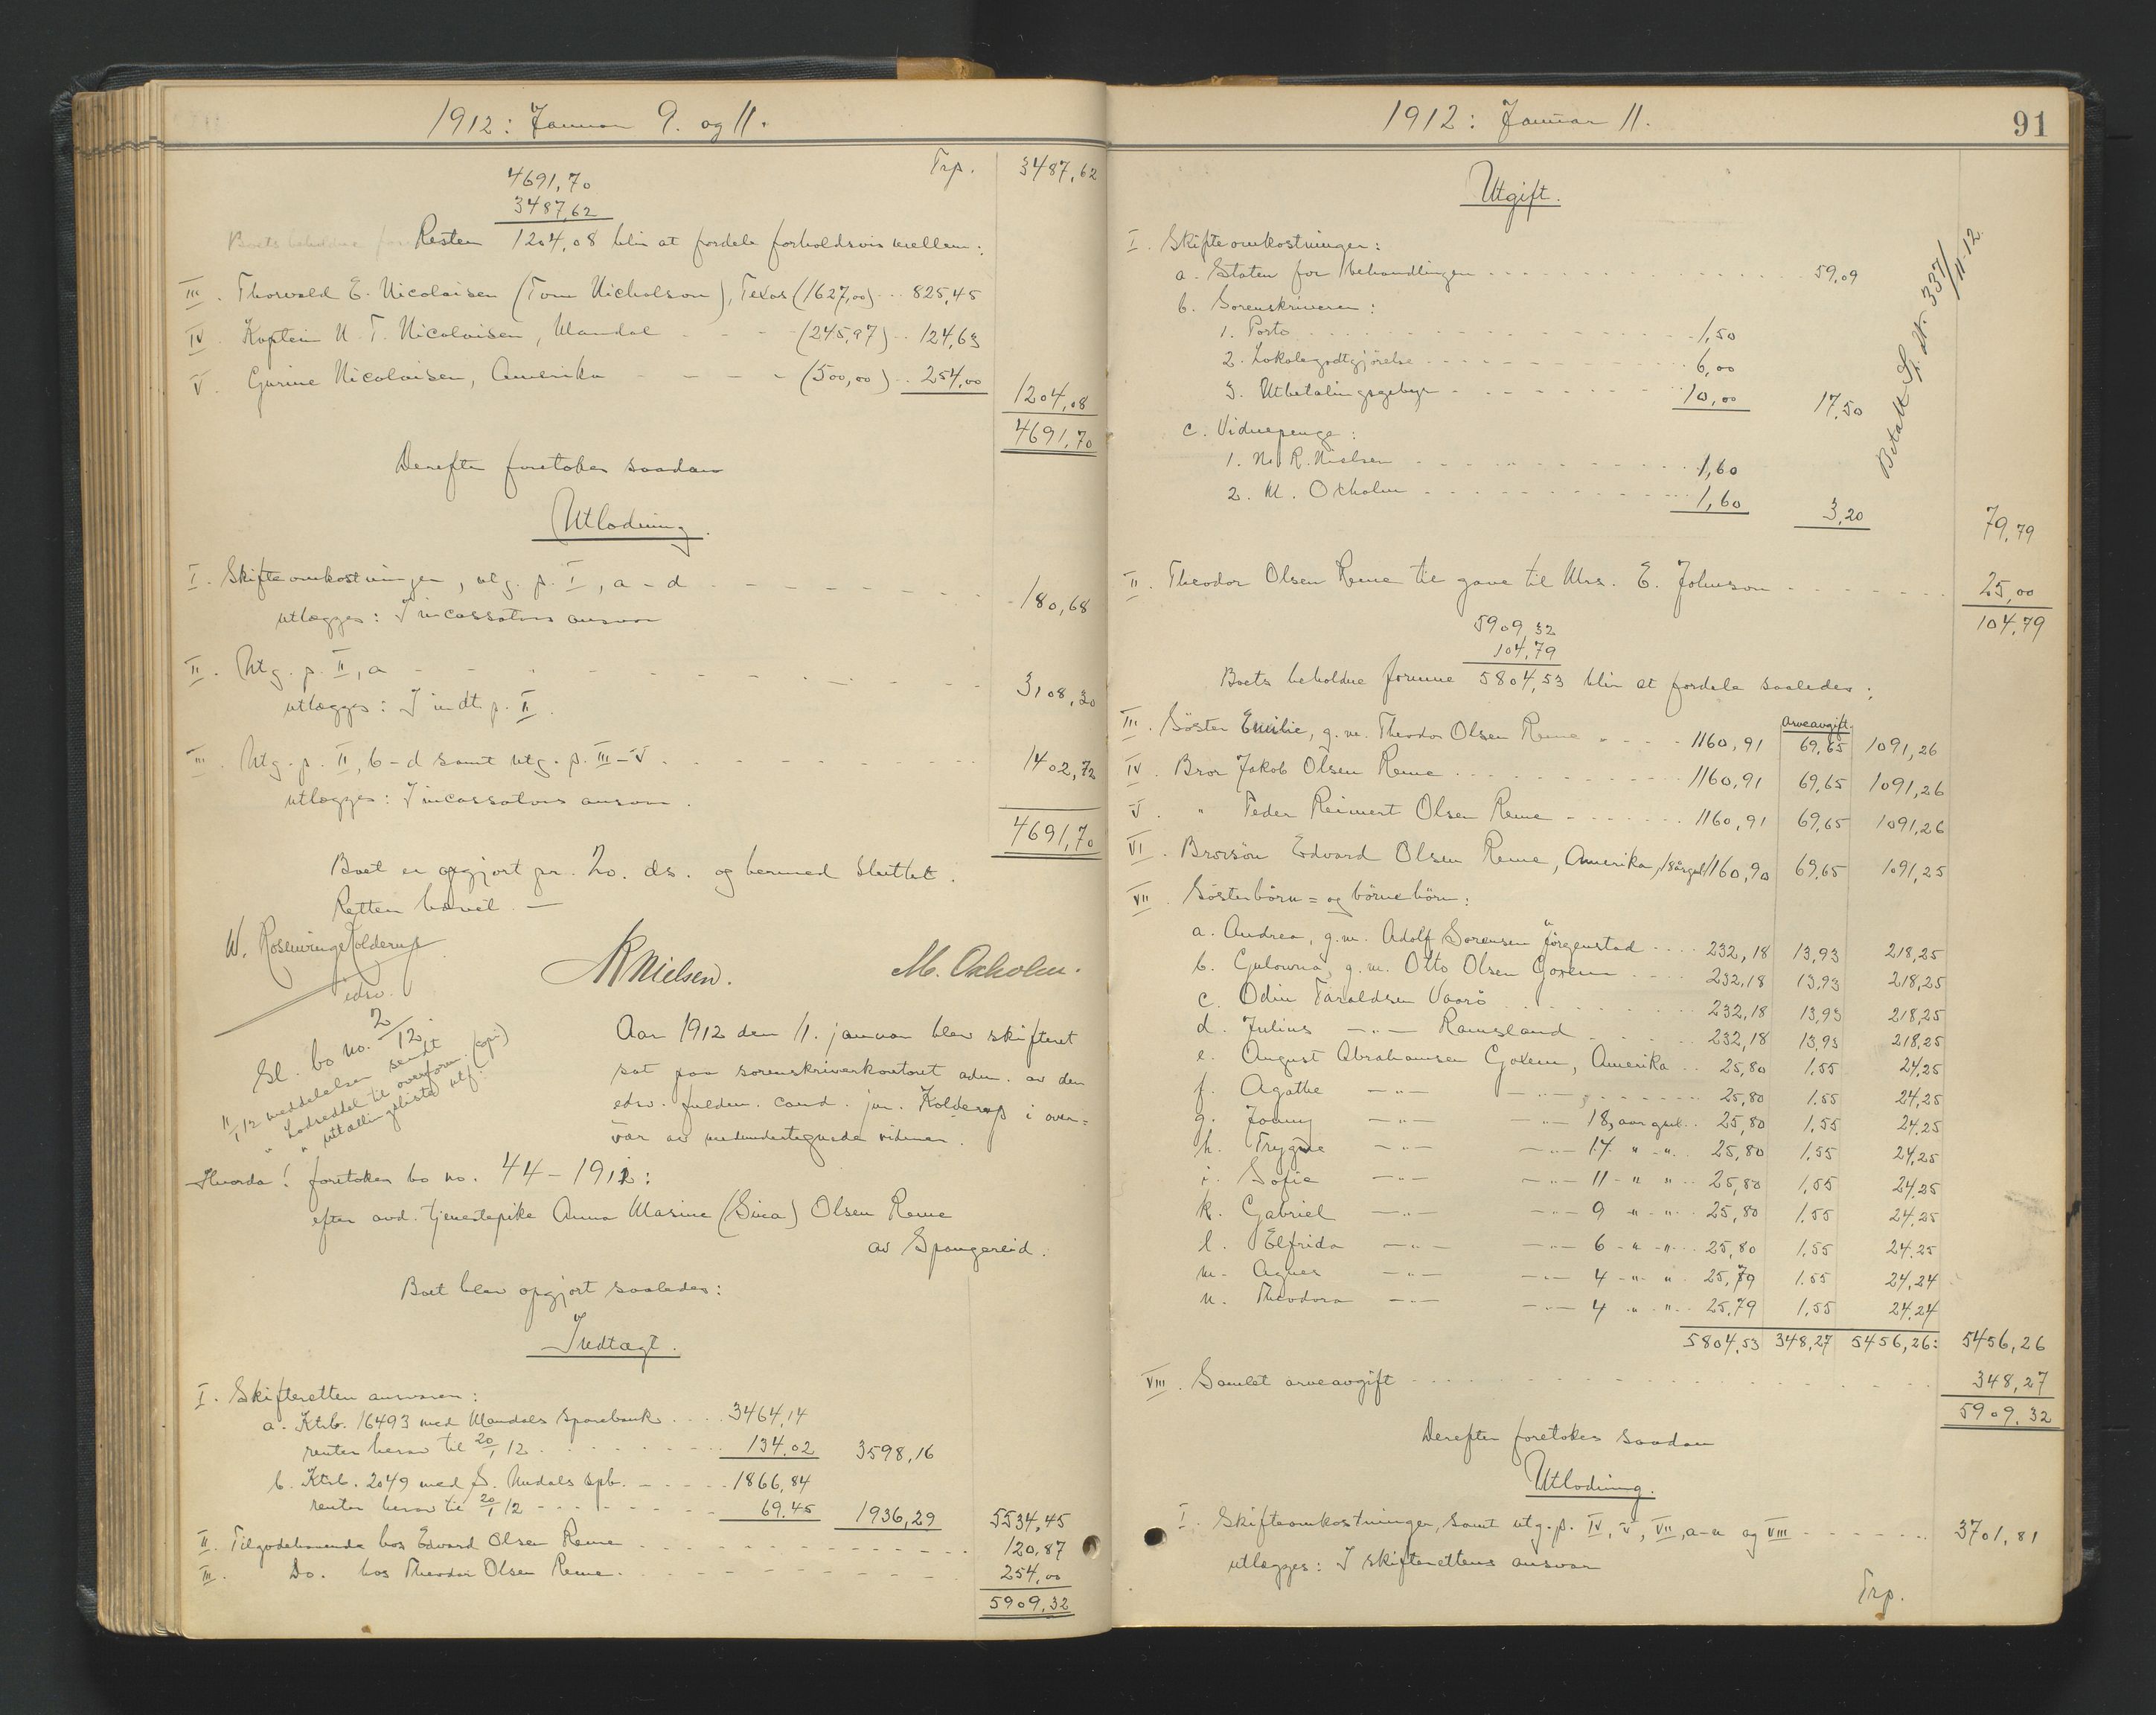 1912: Januar 9. og 11.
Trp. 3487,62
4691,70
3487,62
Resten 1204,08 blir at fordele forholdsvis mellem:
III. Thorvald E. Nicolaisen (Tom Nicholson), Texas (1627,00) .. 825,45
IV. Kaptein N. T. Nicolaisen, Mandal - - - (245,97) .. 124,63
V. Gurine Nicolaisen, Amerika - - - - (500,00) .. 254,00 1204,08
4691,70
Derefter foretokes saadan
Utlodning.
I. Skifteomkostninger, utg. p. I, a-d - - - - - - - - 180,68
utlægges: I incassators ansvar
II. Utg. p. II, a - - - - - - - - - - 3108,30
utlægges: I indt. p. II.
III. Utg. p. II, b-d samt utg. p. III-V . - - - - - - - 1402,72
utlægges: I incassators ansvar.
4691,70
Boet er opgjort pr. 20. ds. og hermed sluttet.
Retten hævet. —
W. Rosenvinge Kolderup
edsv.
N R Nielsen.
M. Oxholm.
Sl. bo no. 2/12.
11/1 12 meddelelser sendt
" Lodseddel til overform. (copi)
" " uttællingsliste utf.
Aar 1912 den 11. januar blev skifteret
sat paa sorenskriverkontoret adm. av den
edsv. fuldm. cand. jur. Kolderup i over=
vær av medundertegnede vidner.
Hvorda! foretokes bo no. 44-1911:
efter avd. tjenestepike Anna Marine (Sina) Olsen Reme
av Spangereid.
Boet blev opgjort saaledes:
Indtægt.
I. Skifteretten ansvarer:
a. Ktrb. 16493 med Mandals sparebank .... 3464,14
renter herav til 20/1 12 - - - - - - 134.02 3598,16
b. Ktrb. 2049 med S. Undals spb. - - - - 1866,84
renter herav til 20/1 12 - - - - - - 69.45 1936,29 5534,45
II. Tilgodehavende hos Edvard Olsen Reme - - - - - - - - - 120,87
III. Do. hos Theodor Olsen Reme. - - - - - - - - - 254,00
5909,32
1912: Januar 11.
91
Utgift.
I. Skifteomkostninger:
a. Staten for behandlingen - - - - - - - - - 59,09
b. Sorenskriveren:
1. Porto - - - - - - - - - 1,50
2. Lokalegodtgjörelse - - - - - - - 6,00
3. Utbetalingsgebyr - - - - - - - 10,00 17,50
c. Vidnepenge:
1. N. R. Nielsen - - - - - - - 1,60
2. M. Oxholm - - - - - - - 1,60 3,20 79,79
Betalt Sp. Nr. 337/11-12
II. Theodor Olsen Reme til gave til Mrs. E. Johnson - - - - - - 25,00
104,79
5909,32
104,79
Boets beholdne formue 5804,53 blir at fordele saaledes:
Arveavgift.
III. Söster Emilie, g.m. Theodor Olsen Reme - - - - 1160,91 69,65 1091,26
IV. Bror Jakob Olsen Reme - - - - - - - 1160,91 69,65 1091,26
V. " Peder Reimert Olsen Reme - - - - - - 1160,91 69,65 1091,26
VI. Brorsön Edvard Olsen Reme, Amerika, 18 årgal 1160,90 69,65 1091,25
VII. Sösterbörn = og börnebörn:
a. Andrea, g.m. Adolf Sorensen Jörgenstad .... 232,18 13,93 218,25
b. Gulowna, g.m. Otto Olsen Goxem .... 232,18 13,93 218,25
c. Odin Taraldsen Vaarö - - - - - - 232,18 13,93 218,25
d. Julius —"— Ramsland - - - - - 232,18 13,93 218,25
e. August Abrahamsen Goxem, Amerika .. 25,80 1.55 24,25
f. Agathe —"— —"—, - - - - - 25,80 1.55 24,25
g. Jonny —"— —"— 18, aar gul.. 25,80 1,55 24,25
h. Trygve —"— —"— 14 " - ".. 25,80 1,55 24,25
i. Sofie —"— —"— 11 - " " .. 25,80 1,55 24,25
k. Gabriel —"— —"— 9 - " - ".. 25,80 1.55 24,25
l. Elfrida —"— —"— 6 - " - ".. 25,80 1,55 24.25
m. Agnes —"— —"— 4 - " - ".. 25,79 1.55 24,24
n. Theodora —"— —"— 4 " - ".. 25.79 1.55 24.24
5804,53 348,27 5456,26: 5456,26
VIII. Samlet arveavgift - - - - - - - - - 348,27
5909,32
Derefter foretokes saadan
Utlodning.
I. Skifteomkostninger, samt utg. p. IV, V, VII, a-n og VIII - - - - - 3701,81
utlægges: I skifterettens ansvar
Trp.